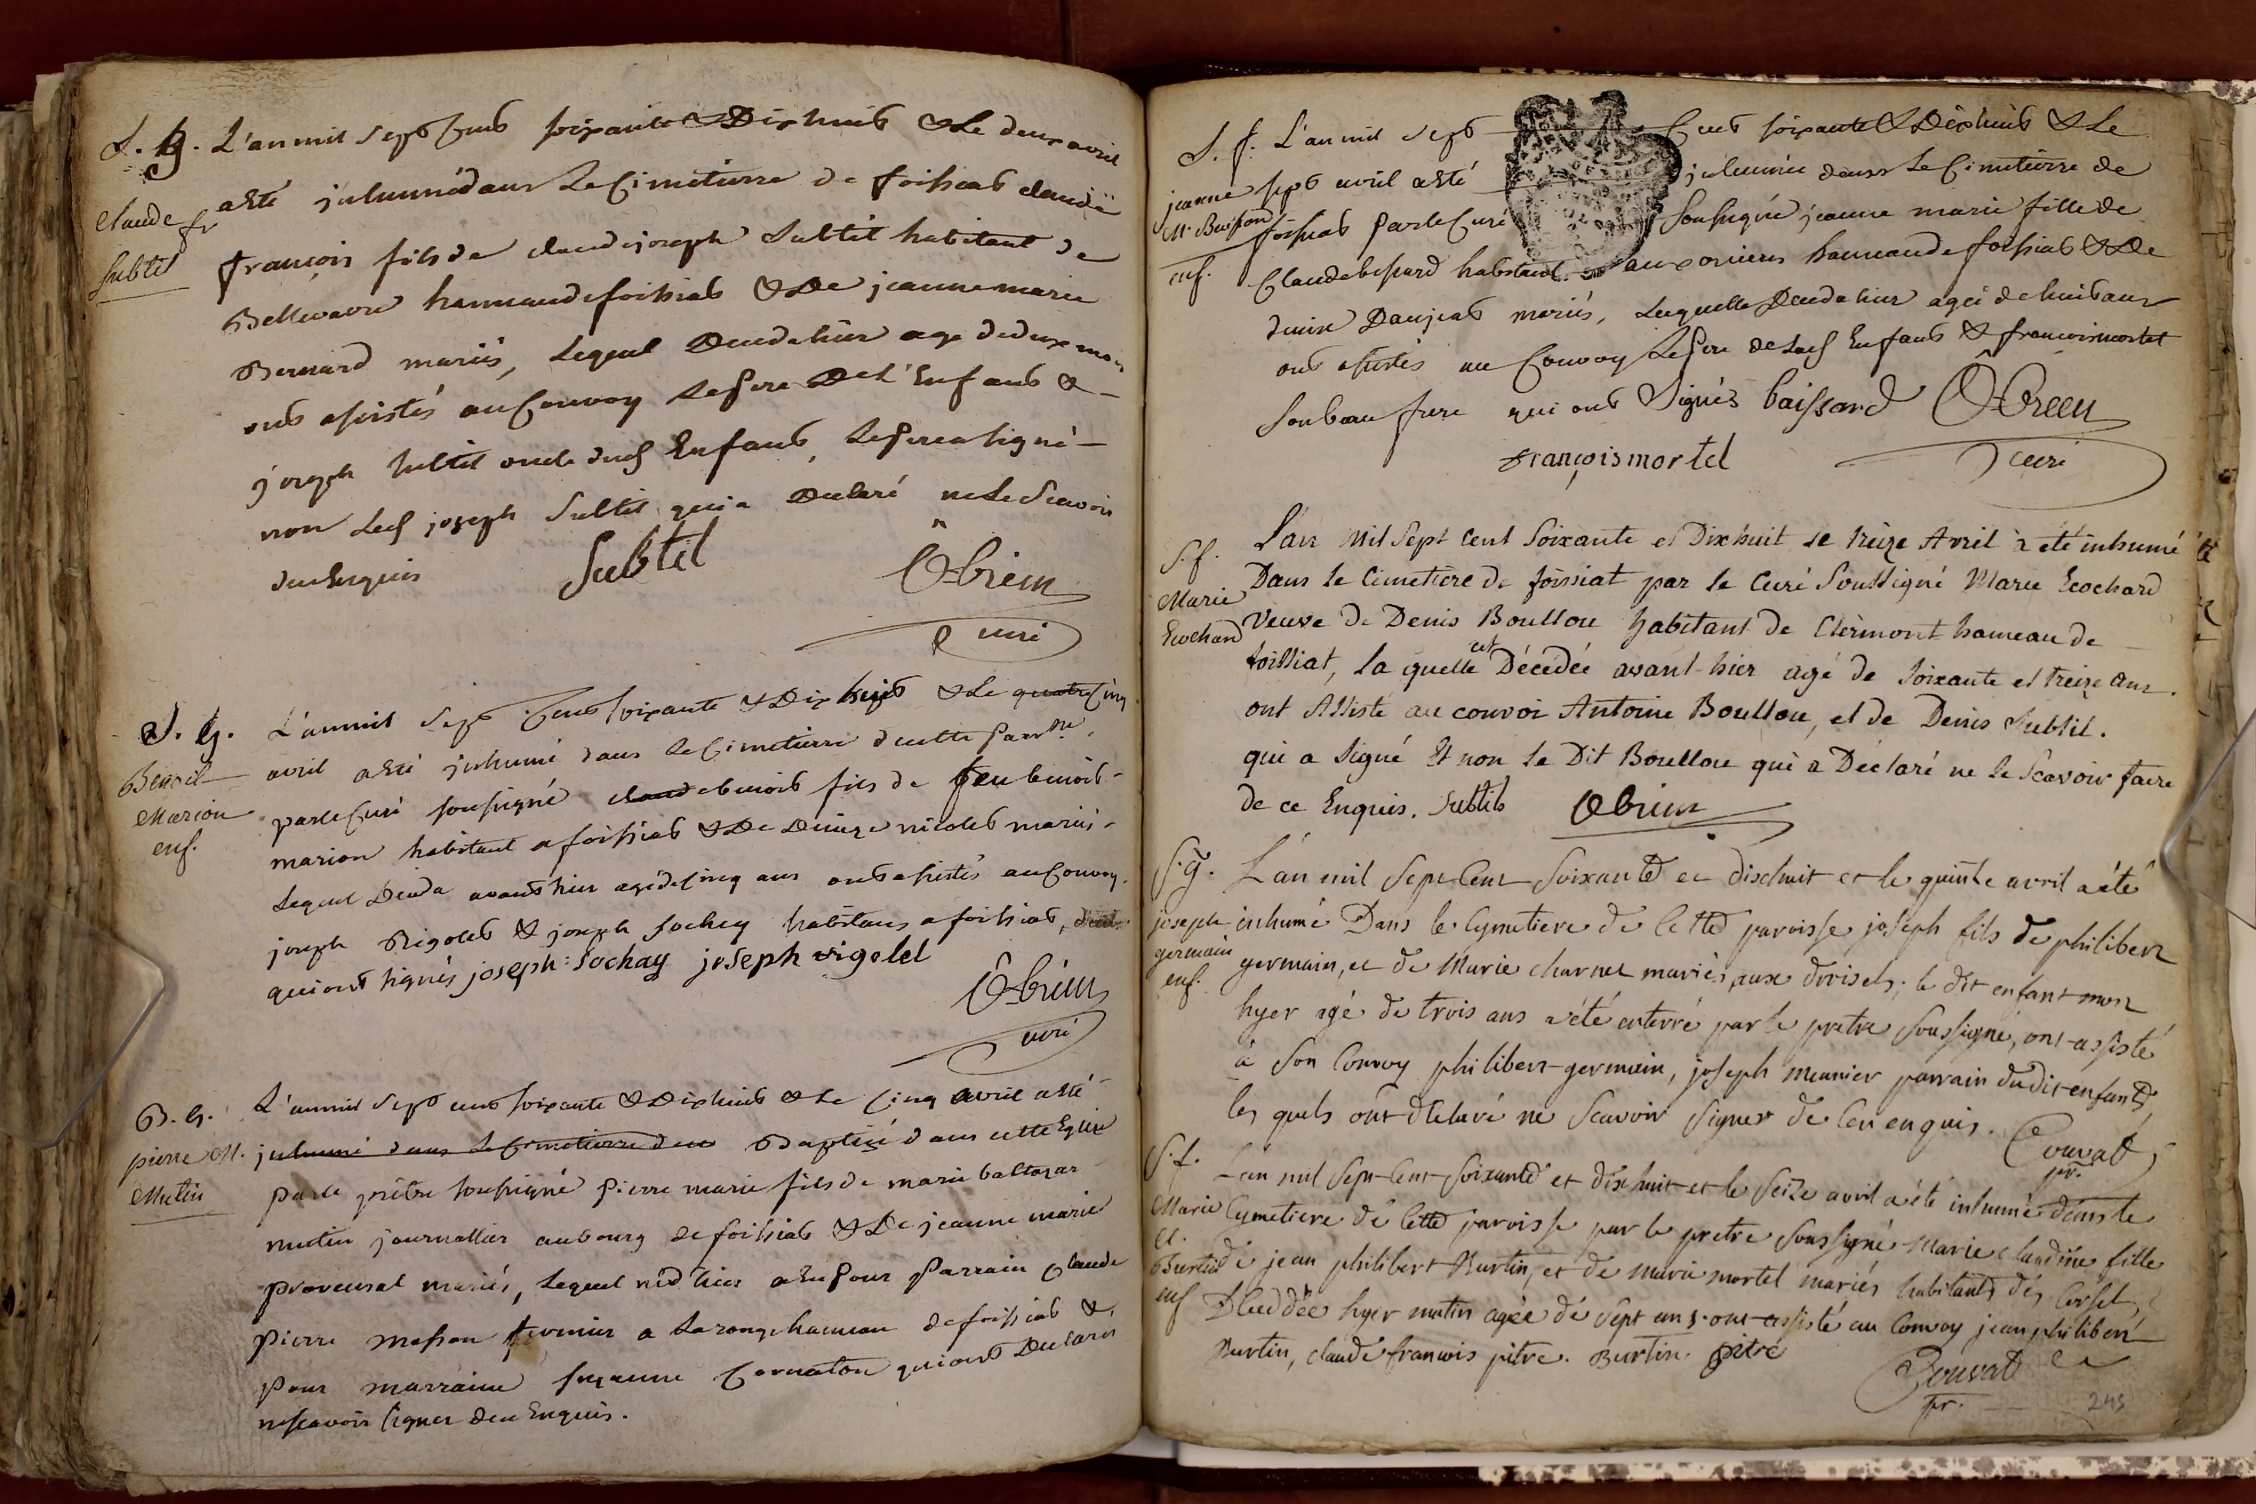 S. g. L'an mil sept Cens soixante & Dix huit & Le deux avril
Claude fr
Subtil
a Esté jnhumé dans Le Cimetierre de foissiat claude
françois fils de claude joseph Subtil habitant de
Bellevavre hammau de foissiat & De jeanne marie
Bernard mariés, Lequel Decedé hier age de deux mois
ont assistés au Convoy Le pere De L'Enfant &
joseph Subtil oncle dud Enfant, Le pere a signé
non Led joseph Subtil qui a Declaré ne Le Scavoir
de ce Enquis
Subtil
Ôbrien
curé
S. g.
Benoit
Marion
enf.
L'an mil sept Cens soixante & Dix huit & Le quatre Cinq
avril a Esté jnhumé dans Le Cimetierre de cette parr.sse
par Le Curé soussigné claude benoit fils de feu benoit
marion habitant a foissiat & De Denize nicolet mariés
Lequel Decedé avant hier agé de Cinq ans ont assistés au Convoy
joseph Rigolet & joseph sochey habitans a foissiat,
qui ont signés joseph : Sochay joseph rigolet
Ôbrien
curé
B. g.
pierre M.
Mutin
L'an mil sept cens soixante & Dix huit & Le Cinq avril a Esté
jnhumé dans Le Cimetierre dece Baptisé dans cette Eglise
par Le prêtre soussigné pierre marie fils de marie baltazar
mutin journallier au bourg de foissiat & De jeanne marie
provensal mariés, Lequel né d'hier a Eu pour Parrain claude
pierre masson fermier a Laronge hameau de foissiat &
pour marraine suzanne Cornaton qui ont Declarés
ne scavoir signer de ce Enquis.
S. f. L'an mil Sept Cens soixante & Dix huit & Le
jeanne
M. Buisson
enf.
sept avril a Esté jnhumée dans Le Cimetierre de
foissiat par Le Curé Soussigné jeanne marie fille de
Claude boissard habitant aux oriens hammau de foissiat & De
Denise Daujeat mariés, Laquelle Decedé hier agée de huit ans
ont assistés au Convoy Le pere de Lad Enfant & francois mortel
Son beau frere qui ont Signés baissard Ôbreen
françois mortel curé
S. f.
Marie
Ecochard
L'an Mil Sept Cent Soixante et Dixhuit le treize Avril a été inhumé
Dans le Cimetiere de foissiat par le Curé Soussigné Marie Ecochard
Veuve de Denis Boullou habitant de Clermont hameau de
foissiat, la quelle est Décédée avant-hier agé de Soixante et treize ans.
ont Assisté au convoi Antoine Boullou, et de Denis Subtil.
qui a Signé Et non le Dit Boullou qui a Déclaré ne le Sçavoir faire
de ce Enquis. Subtil Obrien
S. g.
joseph
germain
enf.
L'an mil Sept Cent Soixante et dixhuit et le quinze avril a été
inhumé Dans le Cymetiere de Cette parroisse joseph fils de philibert
germain, et de Marie charnet mariés, aux droisets ; le dit enfant mort
hyer agé de trois ans a été enterré par le pretre soussigné, ont assisté
à Son Convoy philibert germain, joseph meunier parrain dudit enfant,
les quels ont déclaré ne Scavoir signer de ceu enquis. Couvat
pr.
S. f.
Marie
Cl.
Burtin
enf
L'an mil Sept Cent Soixante et dix huit et le Seize avril a été inhumé dans le
Cymetiere de Cette parroisse par le pretre Soussigné Marie claudine fille
de jean philibert Burtin, et de Marie mortel mariés habitants des Corsel,
Deceddée hyer matin agée de Sept ans. ont assisté au Convoy jean philibert
Burtin, claude francois pitre. Burtin pitre
Couvat
pr.
245